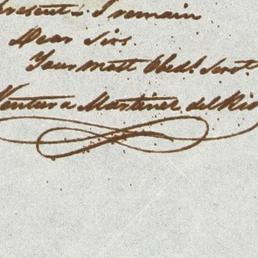 present I remain
Dear Sirs.
Your Most Obedt. Servt.
Ventura Martinez del Rio